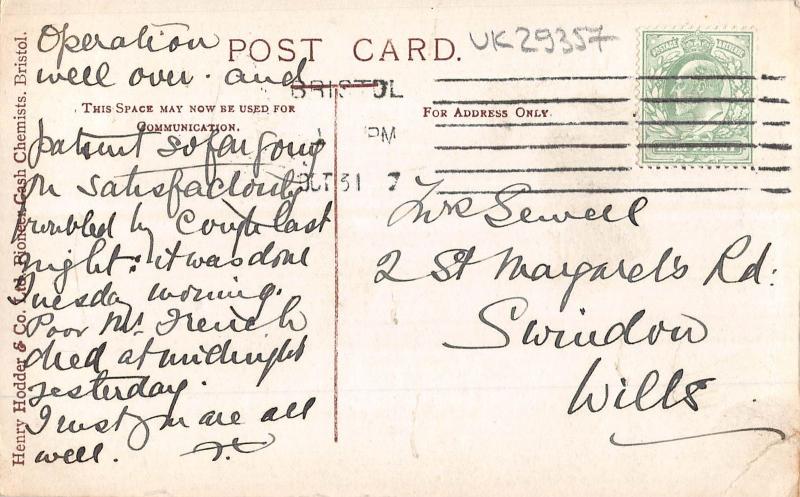 Operation
well over. and
patient so far going
on satisfactorily
troubled by cough last
night: it was done
Tuesday morning.
Poor Mr French
died at midnight
yesterday.
I trust you are all
well.
POST CARD.
UK29357
THIS SPACE MAY NOW BE USED FOR
COMMUNICATION.
FOR ADDRESS ONLY.
BRISTOL
PM
OCT 31 7
Sewell
2 St Margaret's Rd:
Swindon
Wilts
Henry Hodder & Co. Ltd. Pioneer Cash Chemists. Bristol.